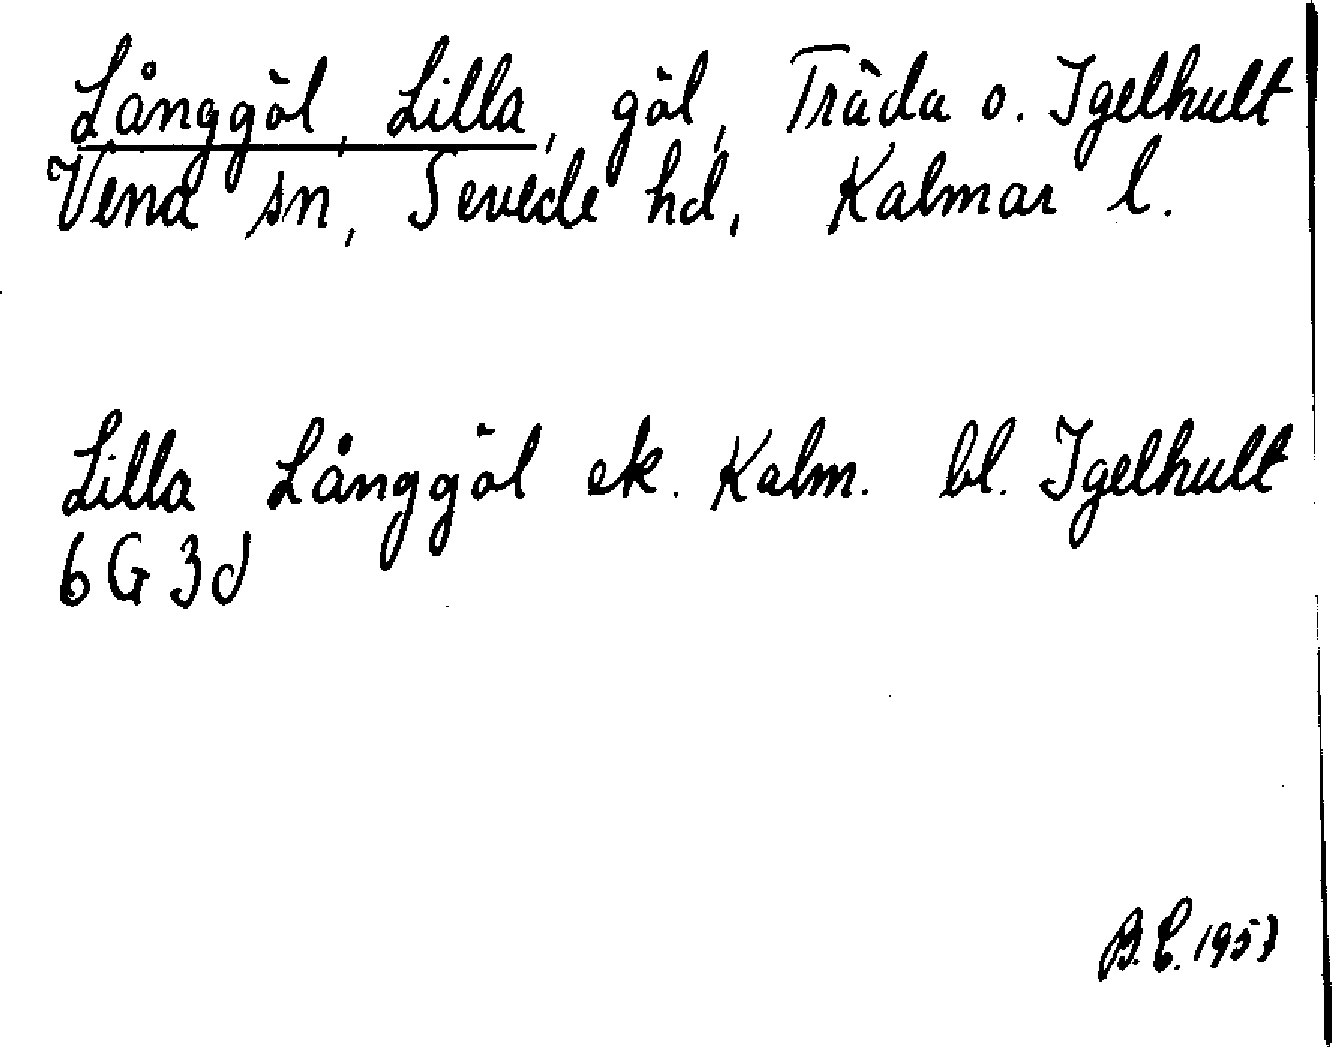 Långgöl, Lilla, göl, Träda o. Igelhult
Vena sn, Sevede hd, Kalmar l.
Lilla Långgöl ek. Kalm. bl. Igelhult
6G3d
B.E. 1957